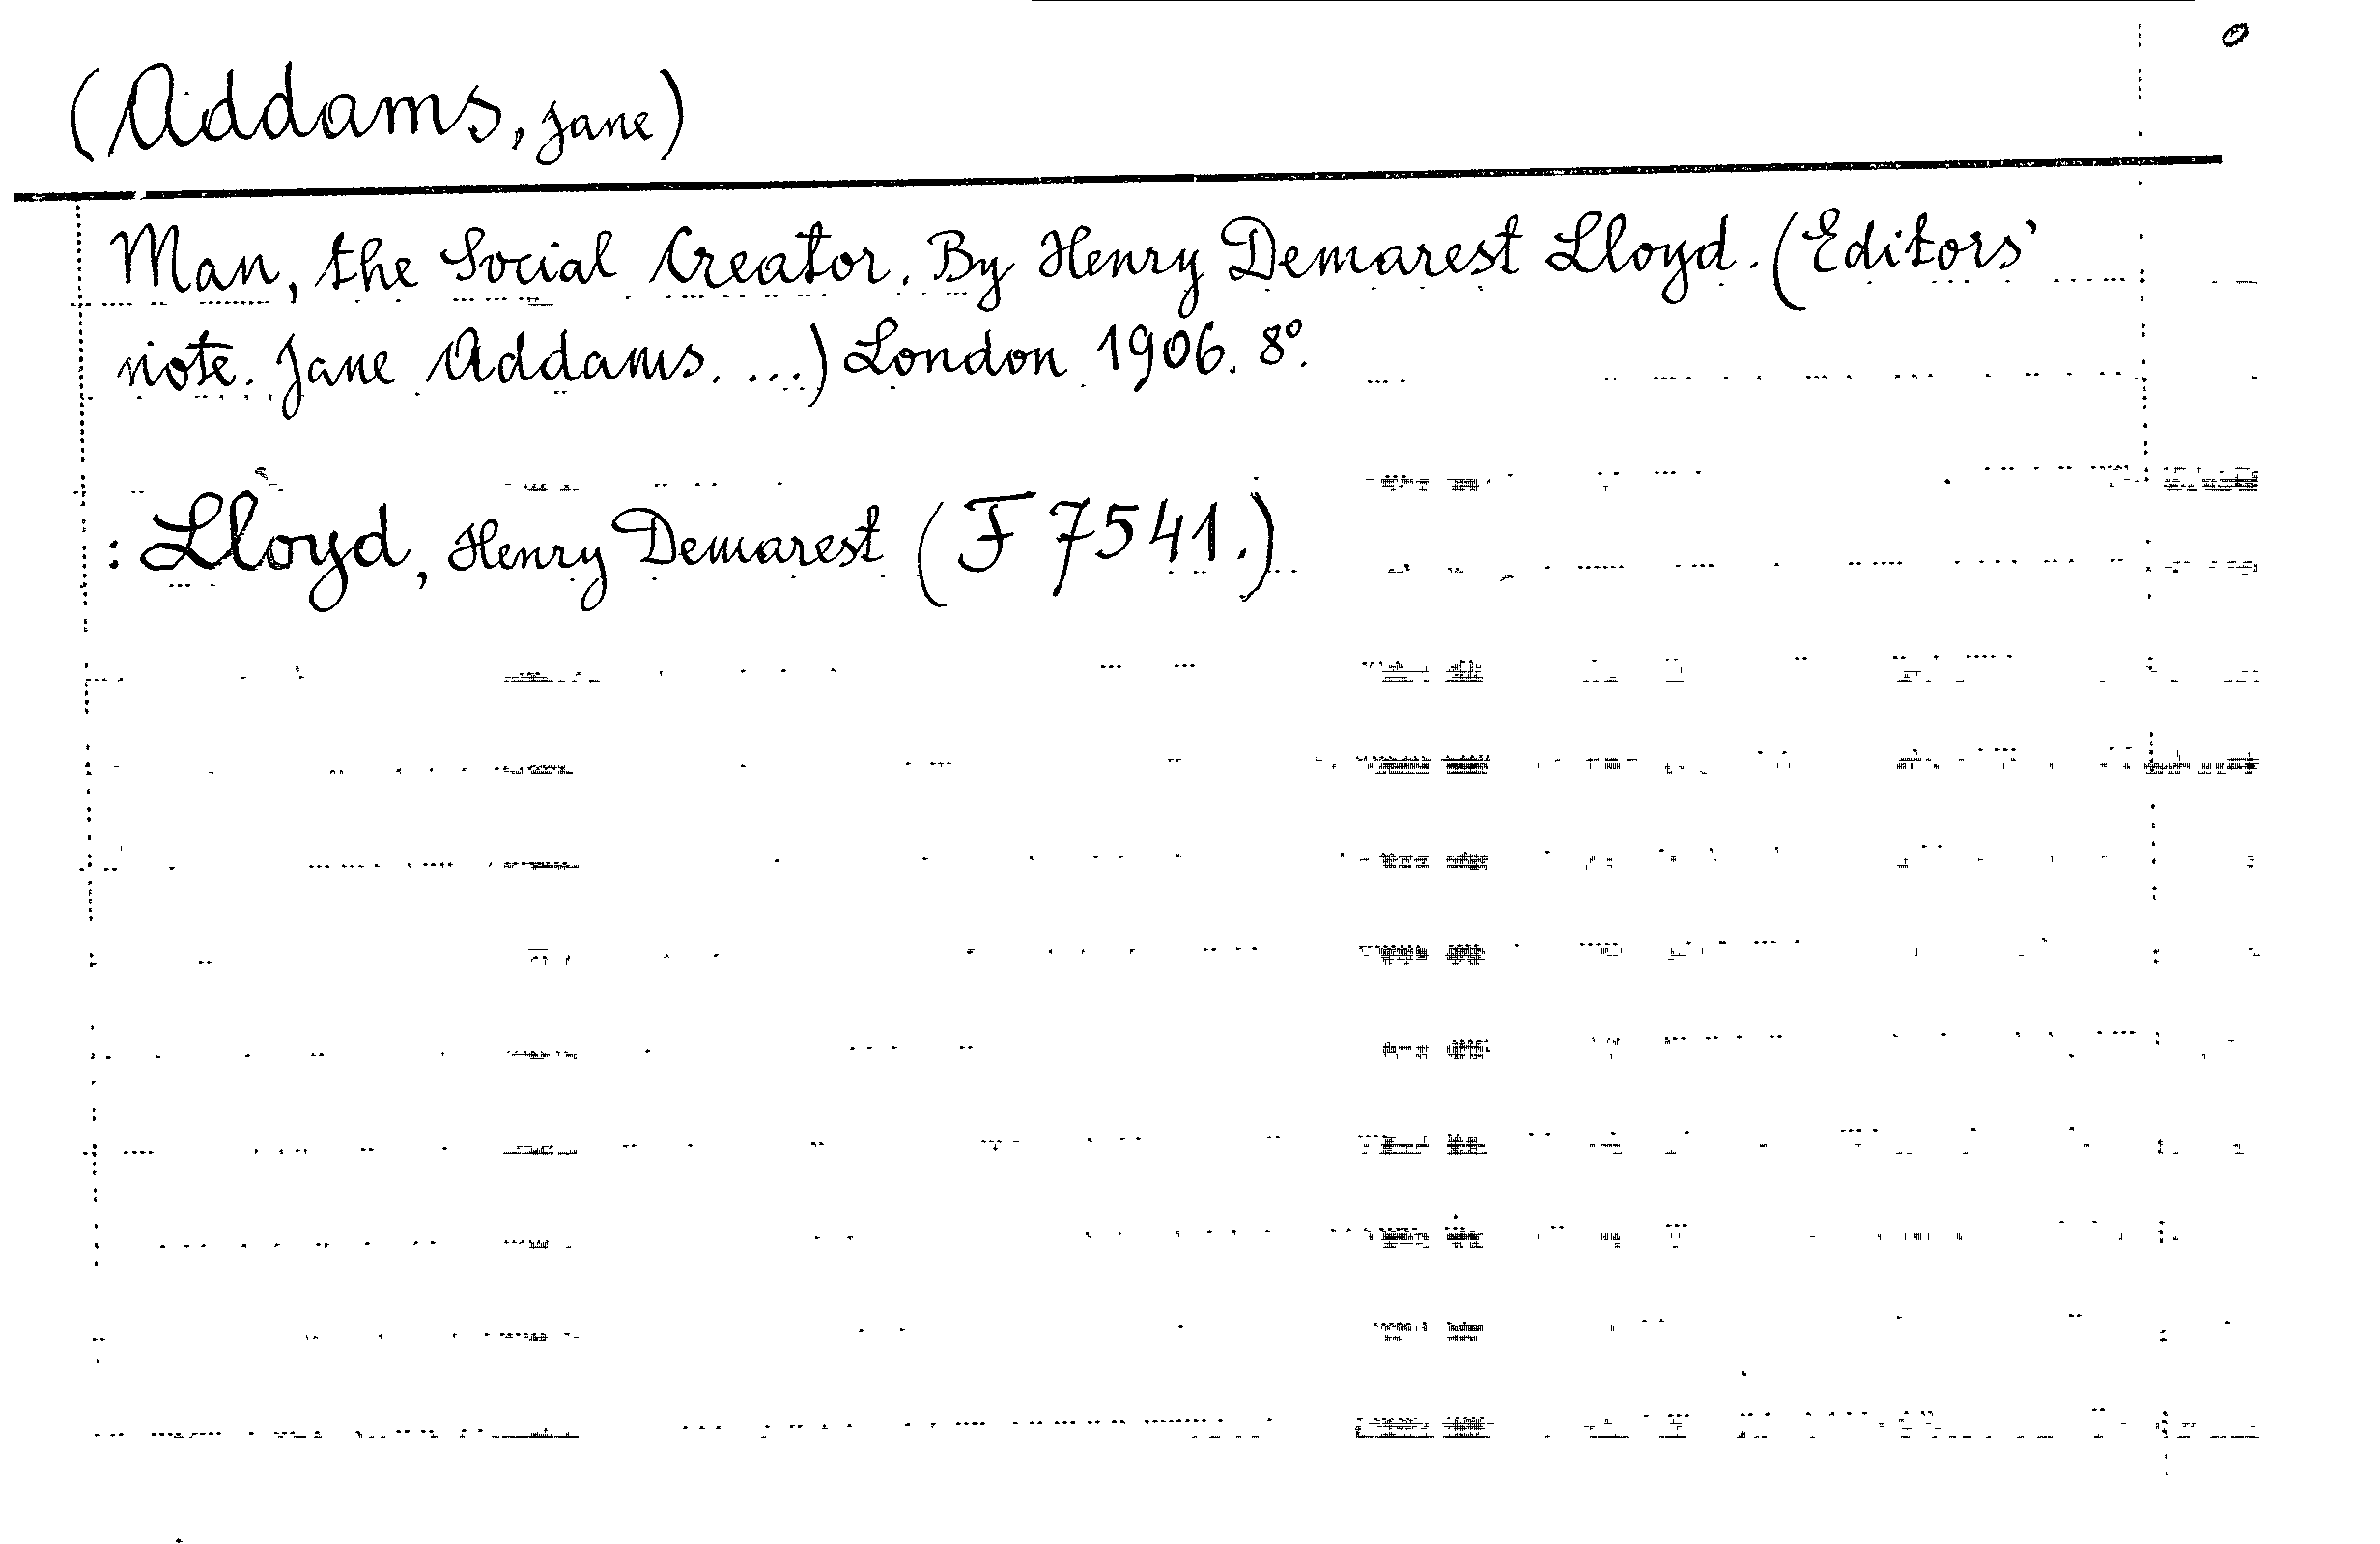 (Addams, Jane)
Man, the Social Creator. By Henry Demarest Lloyd. (Editors'
note. Jane Addams. ...) London 1906. 8°.
: Lloyd, Henry Demarest (F 7541.)